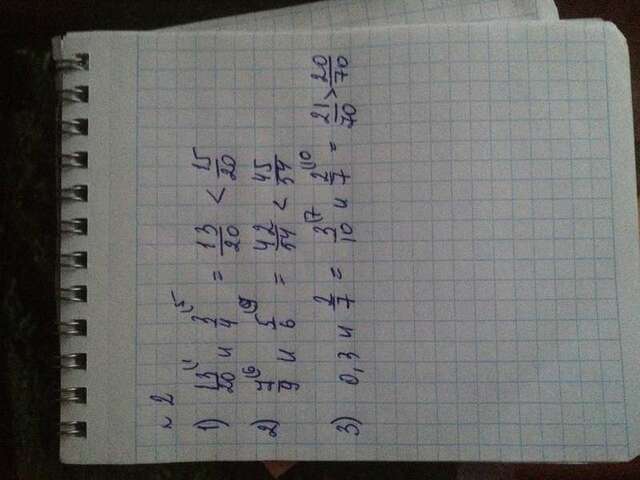 ~ 2
1) 13/20 ⁽¹ и 3/4 ⁽⁵ = 13/20 < 15/20
2) 7/9 ⁽⁶ и 5/6 ⁽⁹ = 42/54 < 45/54
3) 0,3 и 2/7 = 3/10 ⁽⁷ и 2/7 ⁽¹⁰ = 21/70 > 20/70